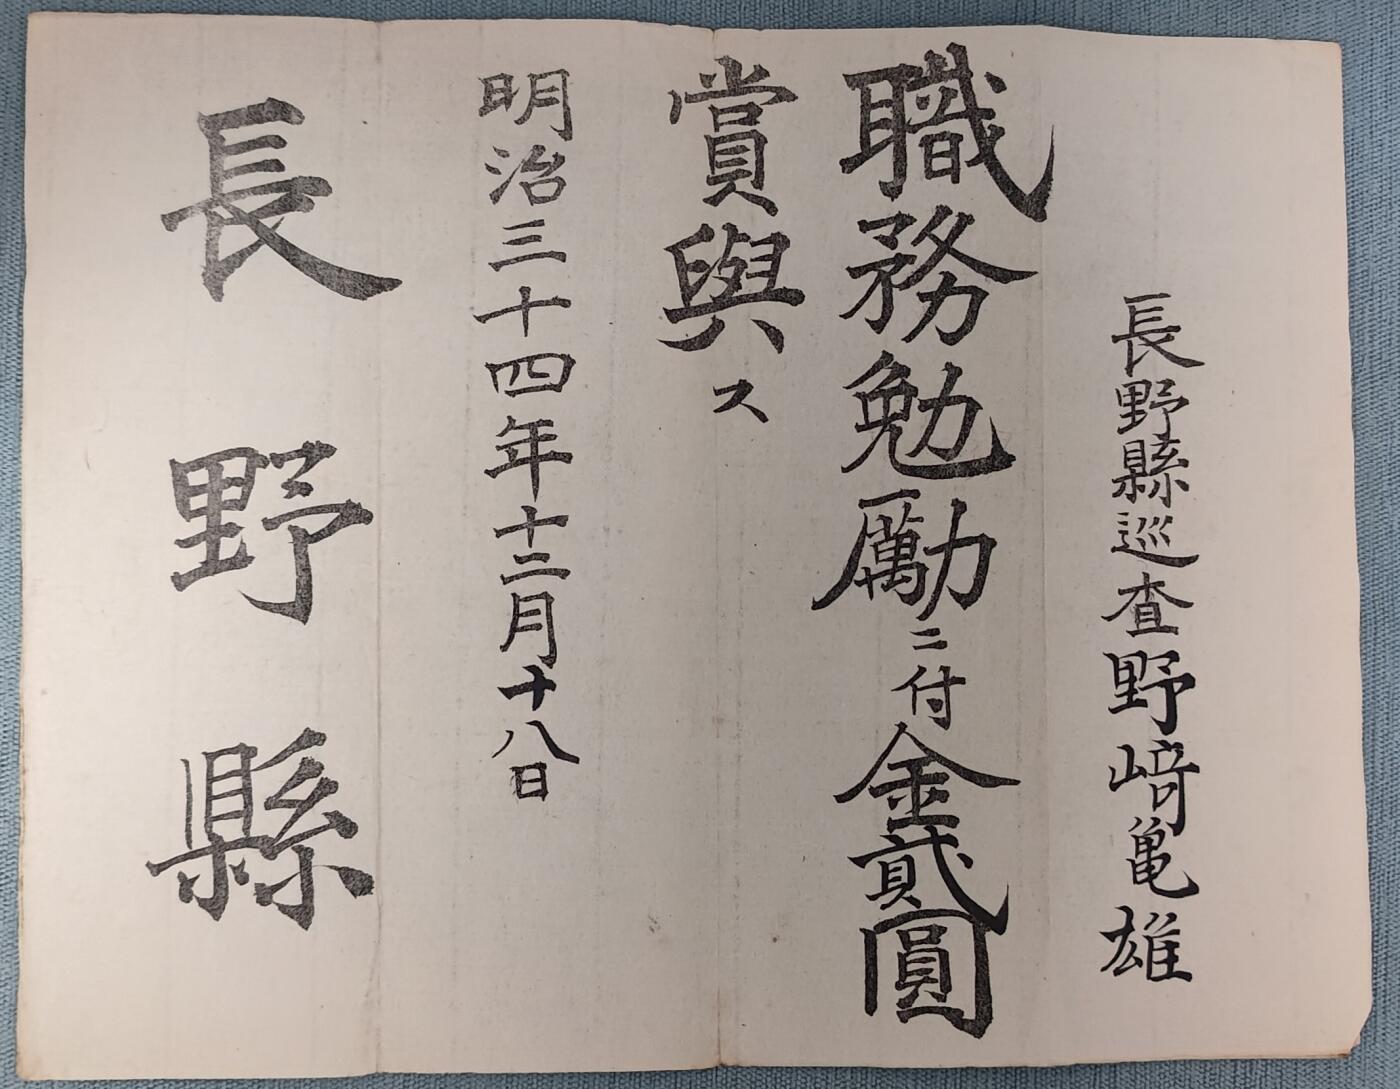 長野縣巡査野﨑亀雄
職務勉勵ニ付金貳圓
賞與ス
明治三十四年十二月十八日
長野縣